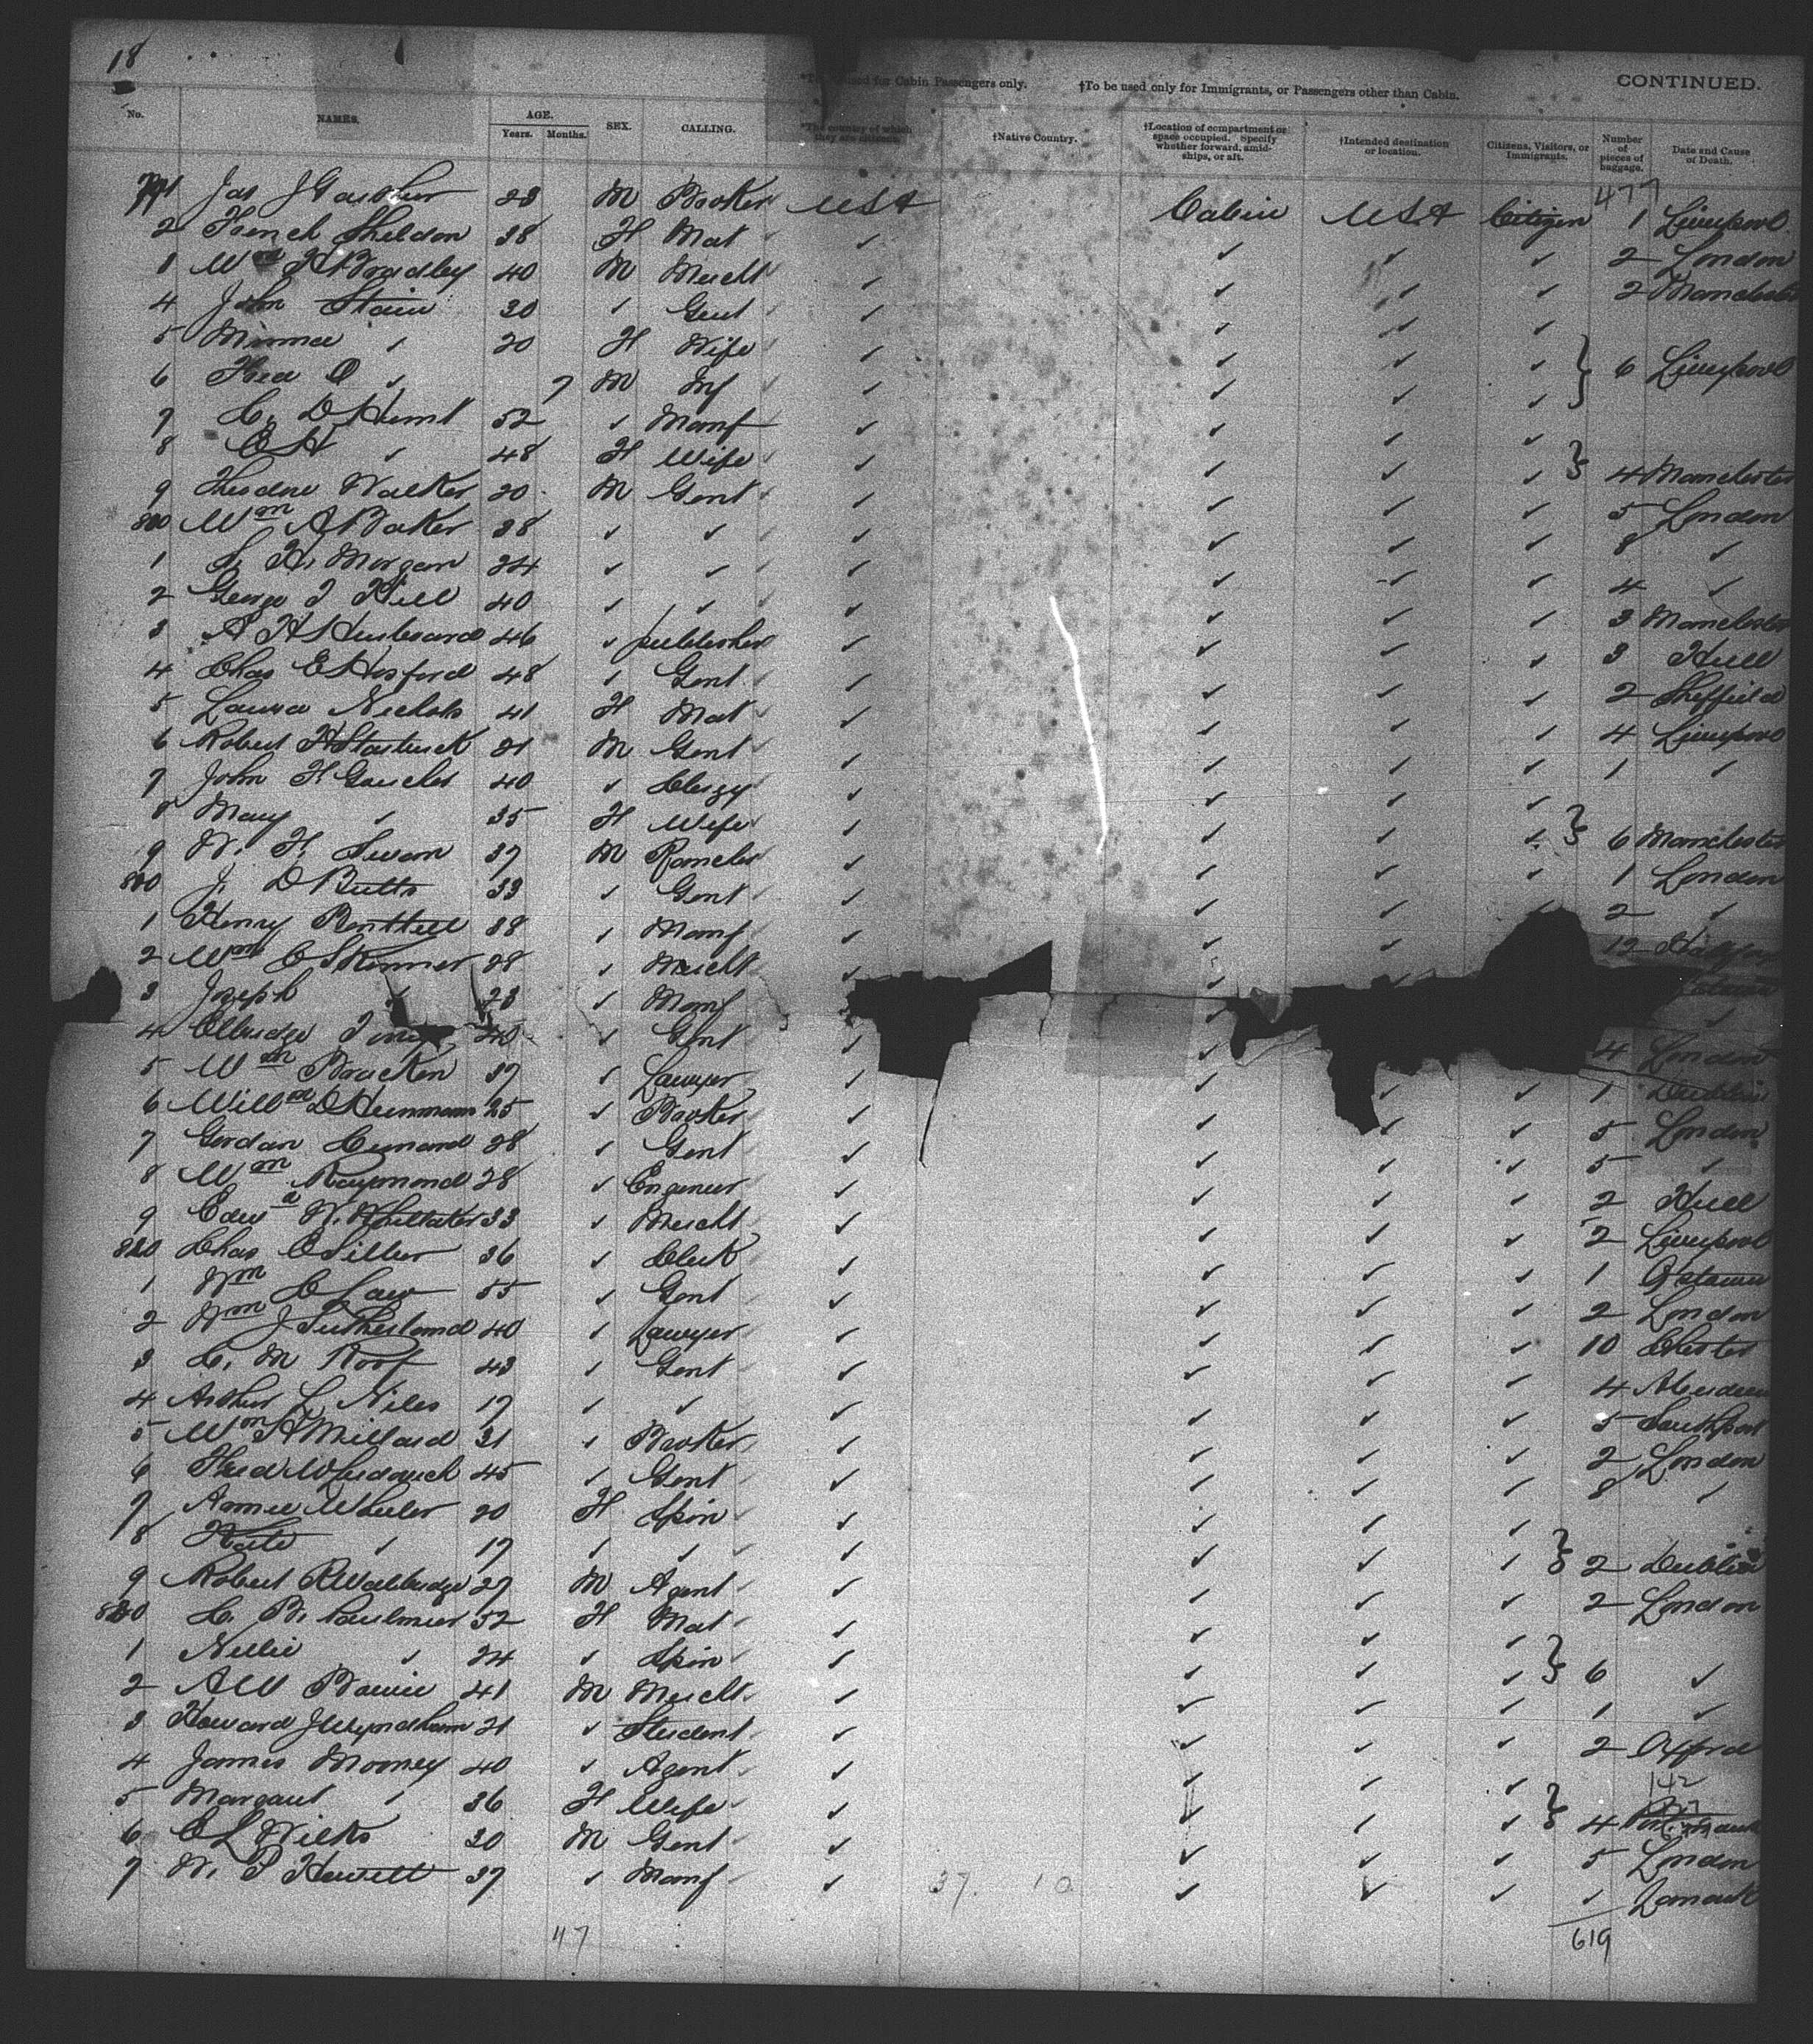 18
*To be used for Cabin Passengers only. †To be used only for Immigrants, or Passengers other than Cabin. CONTINUED.
No. NAMES. AGE. Years. Months. SEX. CALLING. *The country of which they are citizens. †Native Country. †Location of compartment or space occupied. Specify whether forward, amidships, or aft. †Intended destination or location. Citizens, Visitors, or Immigrants. Number of pieces of baggage. Date and Cause of Death.
477
Jas J 23 M USA Cabin USA Citizen 1 Liverpool
2 French Sheldon 38 F Mat ✓ ✓ ✓ ✓ 2 London
Wm H Bradley 40 M Mercht ✓ ✓ ✓ ✓ 2 Manchester
4 John Stain 30 ✓ Gent ✓ ✓ ✓ ✓
5 Minnie ✓ 20 F Wife ✓ ✓ ✓ ✓ } 6 Liverpool
6 Fred O ✓ 7 M Inf ✓ ✓ ✓ ✓
7 C. D Hunt 52 ✓ Manf ✓ ✓ ✓ ✓
8 E H ✓ 48 F Wife ✓ ✓ ✓ ✓ } 4 Manchester
9 Theodore Walker 20 M Gent ✓ ✓ ✓ ✓ 5 London
800 Wm A Baker 38 ✓ ✓ ✓ ✓ ✓ ✓ 8 ✓
1 H. Morgan 24 ✓ ✓ ✓ ✓ ✓ ✓ 4 ✓
2 George T Hill 40 ✓ ✓ ✓ ✓ ✓ ✓ 3 Manchester
3 A H Hubbard 46 ✓ publisher ✓ ✓ ✓ ✓ 3 Hull
4 Chas E Hosford 48 ✓ Gent ✓ ✓ ✓ ✓ 2 Sheffield
5 Laura Nichols 41 F Mat ✓ ✓ ✓ ✓ 4 Liverpool
6 Robert H Starbuck 21 M Gent ✓ ✓ ✓ ✓ 1 ✓
7 John H 40 ✓ Clergy ✓ ✓ ✓ ✓
8 Mary ✓ 35 F Wife ✓ ✓ ✓ ✓ } 6 Manchester
9 W. H. Swan 37 M Rancher ✓ ✓ ✓ ✓ 1 London
J. D Butts 33 ✓ Gent ✓ ✓ ✓ ✓ 2 ✓
1 Henry 38 ✓ Manf ✓ ✓ ✓ 12
2 Wm C Skinner 28 ✓ Mercht ✓ ✓
3 Joseph ✓ 23 ✓ Manf ✓ ✓
4 40 ✓ Gent ✓ ✓ 4 London
5 Wm Bracken 37 ✓ Lawyer ✓ ✓ ✓ ✓ 1 Dublin
6 25 ✓ ✓ ✓ ✓ ✓ 5 London
7 Gordan Cunard 28 ✓ Gent ✓ ✓ ✓ ✓ 5 ✓
8 Wm Raymond 28 ✓ Engineer ✓ ✓ ✓ ✓ 2 Hull
9 Edwd W. Whittaker 33 ✓ Mercht ✓ ✓ ✓ ✓ 2 Liverpool
820 Chas E 36 ✓ Clerk ✓ ✓ ✓ ✓ 1 Qstown
1 Wm C Law 55 ✓ Gent ✓ ✓ ✓ ✓ 2 London
2 Wm J Sutherland 40 ✓ Lawyer ✓ ✓ ✓ ✓ 10 Chester
3 C. M Roof 43 ✓ Gent ✓ ✓ ✓ ✓ 4 Aberdeen
4 Arthur L Niles 17 ✓ ✓ ✓ ✓ ✓ ✓ 5 Southport
5 Wm H Millard 31 ✓ ✓ ✓ ✓ ✓ 2 London
6 Fred 45 ✓ Gent ✓ ✓ ✓ ✓ 8 ✓
7 Annie Wheeler 20 F Spin ✓ ✓ ✓ ✓
8 Kate ✓ 17 ✓ ✓ ✓ ✓ ✓ ✓ } 2 Dublin
9 Robert R Walbridge 27 M Agent ✓ ✓ ✓ ✓ 2 London
C. B. 52 F Mat ✓ ✓ ✓ ✓
1 Nellie ✓ 24 ✓ Spin ✓ ✓ ✓ ✓ } 6 ✓
2 A W 41 M Mercht ✓ ✓ ✓ ✓ 1 ✓
3 Howard J Wyndham 21 ✓ Student ✓ ✓ ✓ ✓ 2 Oxford
4 James Mooney 40 ✓ Agent ✓ ✓ ✓ ✓ 142
5 Margaret ✓ 36 F Wife ✓ ✓ ✓ ✓ } 4
6 E L Wilks 30 M Gent ✓ ✓ ✓ ✓ 5 London
7 W. P Hewitt 37 ✓ Manf ✓ ✓ ✓ ✓ ✓ Lanark
37. 10
47 619